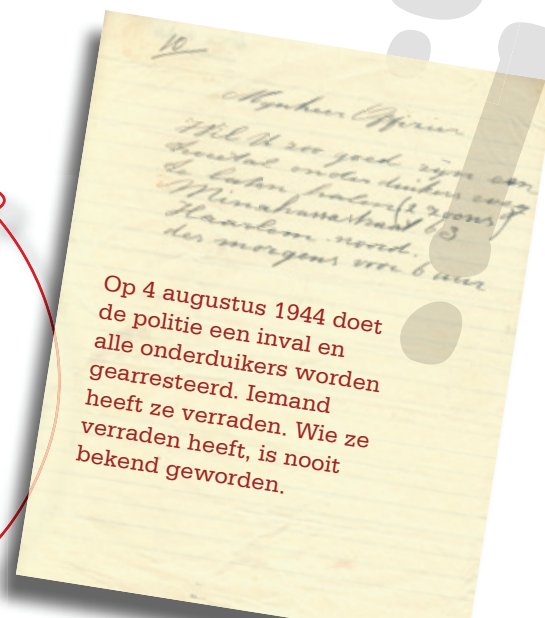 10
Mijnheer Officier
Wil U zoo goed zijn een
tweetal onderduikers weg
te laten halen (2 zoons)
Minahassastraat 63
Haarlem-noord.
des morgens voor 6 uur
Op 4 augustus 1944 doet
de politie een inval en
alle onderduikers worden
gearresteerd. Iemand
heeft ze verraden. Wie ze
verraden heeft, is nooit
bekend geworden.